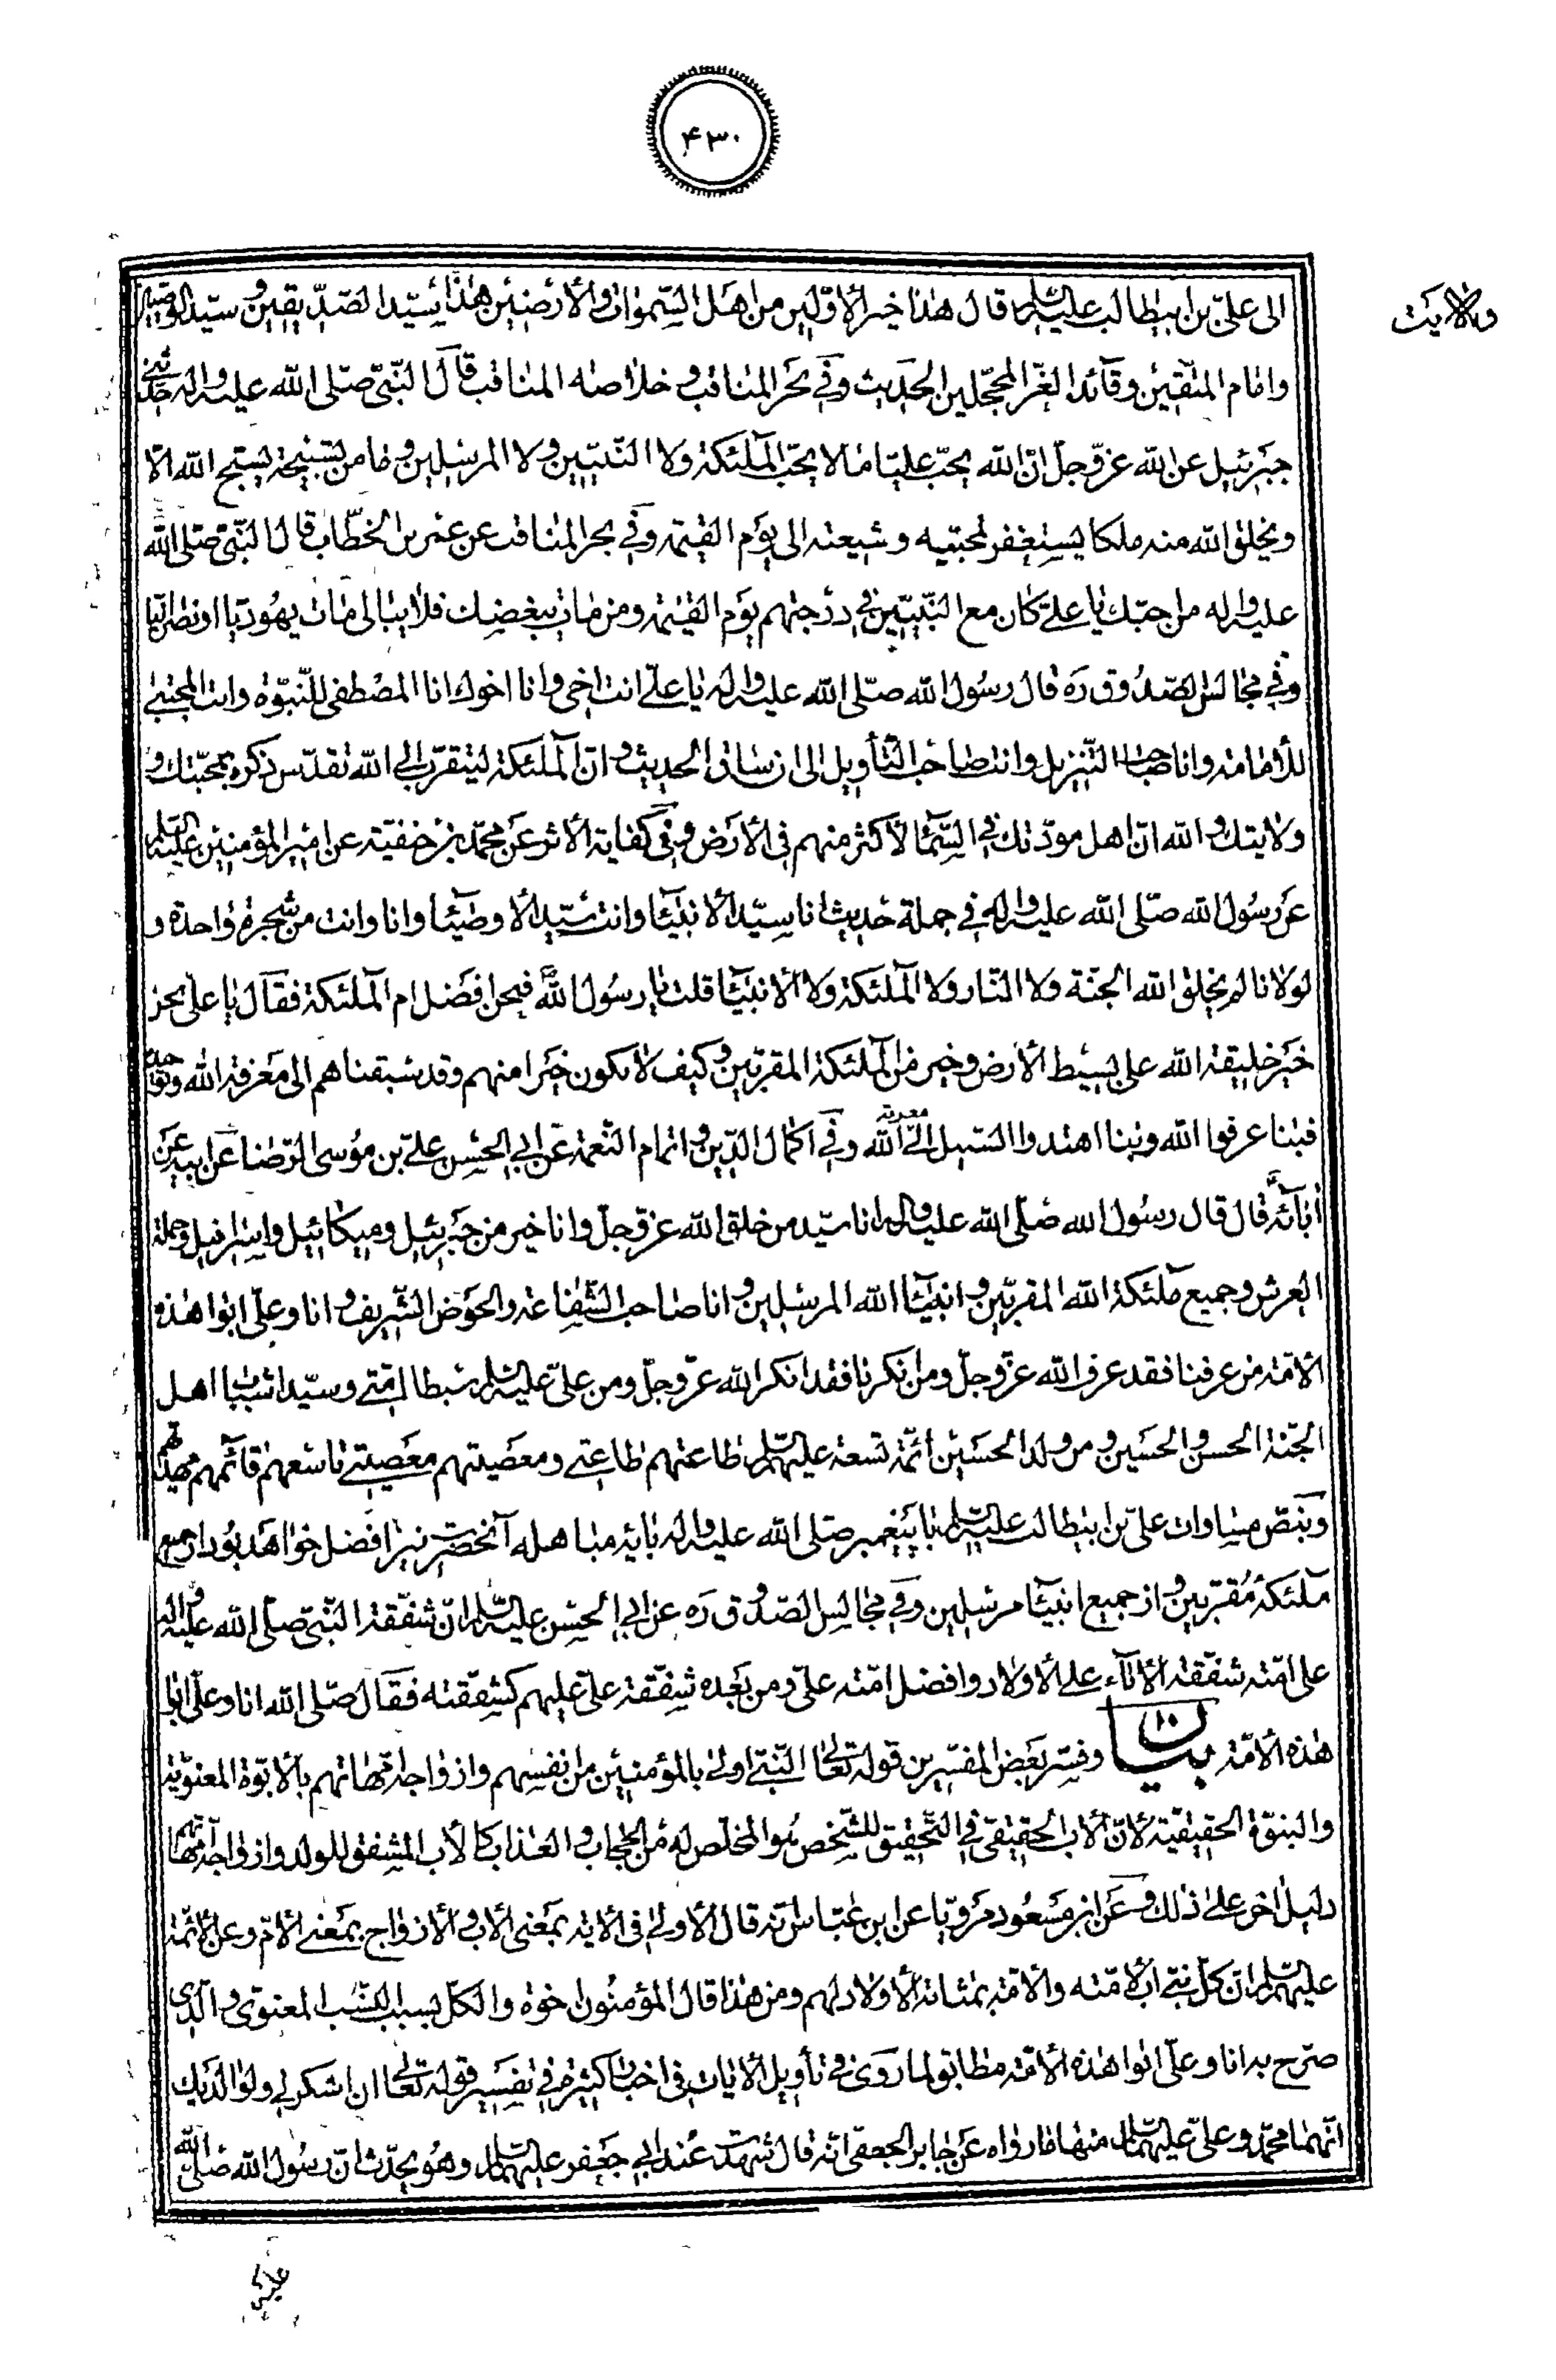 ۴۳۰
ولایت
الی علیّ بن ابیطالب علیه السلم قال هذا خیر الاوّلین من اهل السّموات والارضین هذا سیّد الصّدّیقین و سیّد الوصیین
وامام المتّقین وقائد الغرّ المحجّلین الحدیث وفی بحر المناقب و خلاصه المناقب قال النّبیّ صلّی الله علیه واله حدثنی
جبرئیل عن الله عزّوجلّ انّ الله یحبّ علیّا ما لا یحبّ الملئکة ولا النّبیّین ولا المرسلین وما من تسبیحة یسبح الله الّا
ویخلق الله منه ملکا یستغفر لمحبّیه وشیعته الی یوم القیمة وفی بحر المناقب عن عمر بن الخطّاب قال النّبیّ صلّی الله
علیه واله من احبّک یا علیّ کان مع النّبیّین فی درجتهم یوم القیمة ومن مات یبغضک فلا یبالی مات یهودیّا او نصرانیّا
وفی مجالس الصّدوق ره قال رسول الله صلّی الله علیه واله یا علیّ انت اخی وانا اخوک انا المصطفی للنّبوّة وانت المجتبی
للامامة وانا صاحب التّنزیل وانت صاحب التّأویل الی ان ساق الحدیث وانّ الملئکة لیتقرّب الی الله تقدّس ذکره بمحبّتک و
ولایتک والله انّ اهل مودّتک فی السّماء لاکثر منهم فی الارض وفی کفایة الاثر عن محمّد بن حنفیّة عن امیر المؤمنین علیه السلم
عن رسول الله صلّی الله علیه واله فی جملة حدیث انا سیّد الانبیاء وانت سیّد الاوصیاء وانا وانت من شجرة واحدة و
لولانا لم یخلق الله الجنّة ولا النّار ولا الملئکة ولا الانبیاء قلت یا رسول الله فنحن افضل ام الملئکة فقال یا علی نحن
خیر خلیقة الله علی بسیط الارض وخیر من الملئکة المقرّبین وکیف لا نکون خیرا منهم وقد سبقناهم الی معرفة الله وتوحیده
فبنا عرفوا الله وبنا اهتدوا السّبیل الی معرفة الله وفی اکمال الدّین واتمام النّعمة عن ابی الحسن علیّ بن موسی الرّضا عن ابیه عن
ابائه قال قال رسول الله صلّی الله علیه واله انا سیّد من خلق الله عزّوجلّ وانا خیر من جبرئیل ومیکائیل واسرافیل وحملة
العرش وجمیع ملئکة الله المقرّبین وانبیاء الله المرسلین وانا صاحب الشّفاعة والحوض الشّریف وانا وعلیّ ابوا هذه
الامّة من عرفنا فقد عرف الله عزّوجلّ ومن انکرنا فقد انکر الله عزّوجلّ ومن علیّ علیه السلم سبطا امّتی وسیّدا شباب اهل
الجنّة الحسن والحسین ومن ولد الحسین ائمّة تسعة علیهم السلم طاعتهم طاعتی ومعصیتهم معصیتی تاسعهم قائمهم ومهدیّهم
وبنصّ مساوات علیّ بن ابیطالب علیه السلم با پیغمبر صلّی الله علیه واله بایه مباهله آنحضرت نیز افضل خواهد بود از جمیع
ملئکهٔ مقرّبین واز جمیع انبیاء مرسلین وفی مجالس الصّدوق ره عن ابی الحسن علیه السلم انّ شفقة النّبیّ صلّی الله علیه واله
علی امّته شفقة الاباء علی الاولاد وافضل امّته علیّ ومن بعده شفقة علیّ علیهم کشفقته فقال صلّی الله انا وعلیّ ابوا
هذه الامّة بیان ۱۰ وفسّر بعض المفسّرین قوله تعالی النّبیّ اولی بالمؤمنین من انفسهم وازواجه امّهاتهم بالابوّة المعنویّة
والبنوّة الحقیقیّة لانّ الاب الحقیقی فی التّحقیق للشّخص هو المخلّص له من الحجاب والعذاب کالاب المشفق للولد وازواجه امّهاتهم
دلیل اخر علی ذلک وعن ابن مسعود مرویّا عن ابن عبّاس انّه قال الاولی فی الایة بمعنی الاب والازواج بمعنی الامّ وعن الائمّة
علیهم السلم انّ کلّ نبیّ اب لامّته والامّة بمثابة الاولاد لهم ومن هذا قال المؤمنون اخوة والکلّ بسبب النّسب المعنوی والّذی
صرّح به انا وعلیّ ابوا هذه الامّة مطابق لما روی فی تأویل الایات فی اخبار کثیرة فی تفسیر قوله تعالی ان اشکر لی ولوالدیک
انّهما محمّد وعلیّ علیهما السلم منها ما رواه عن جابر الجعفی انّه قال شهدت عند ابی جعفر علیه السلم وهو یحدّث انّ رسول الله صلّی الله